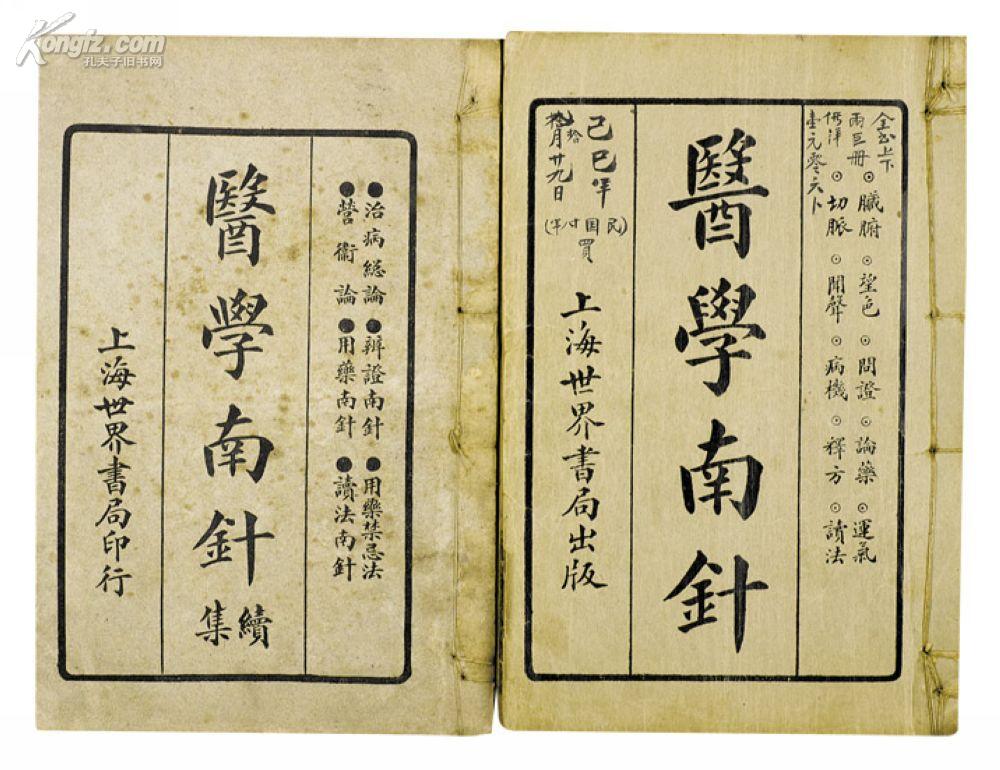 Kongfz.com
孔夫子旧书网
全書上下
兩巨冊
佛洋
臺元零六卜
⊙臟腑⊙望色⊙問證⊙論藥⊙運氣
⊙切脈⊙聞聲⊙病機⊙釋方⊙讀法
醫學南針
己巳年
拾月廿九日
(民国十八年)
買
上海世界書局出版
●治病總論●辨證南針●用藥禁忌法
●營衞論●用藥南針●讀法南針
醫學南針
續集
上海世界書局印行